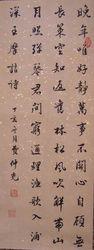 晚年唯好靜萬事不關心自顧無
長策空知返舊林松風吹解帶山
月照彈琴君問窮通理漁歌入浦
深 王摩詰詩 丁亥年月